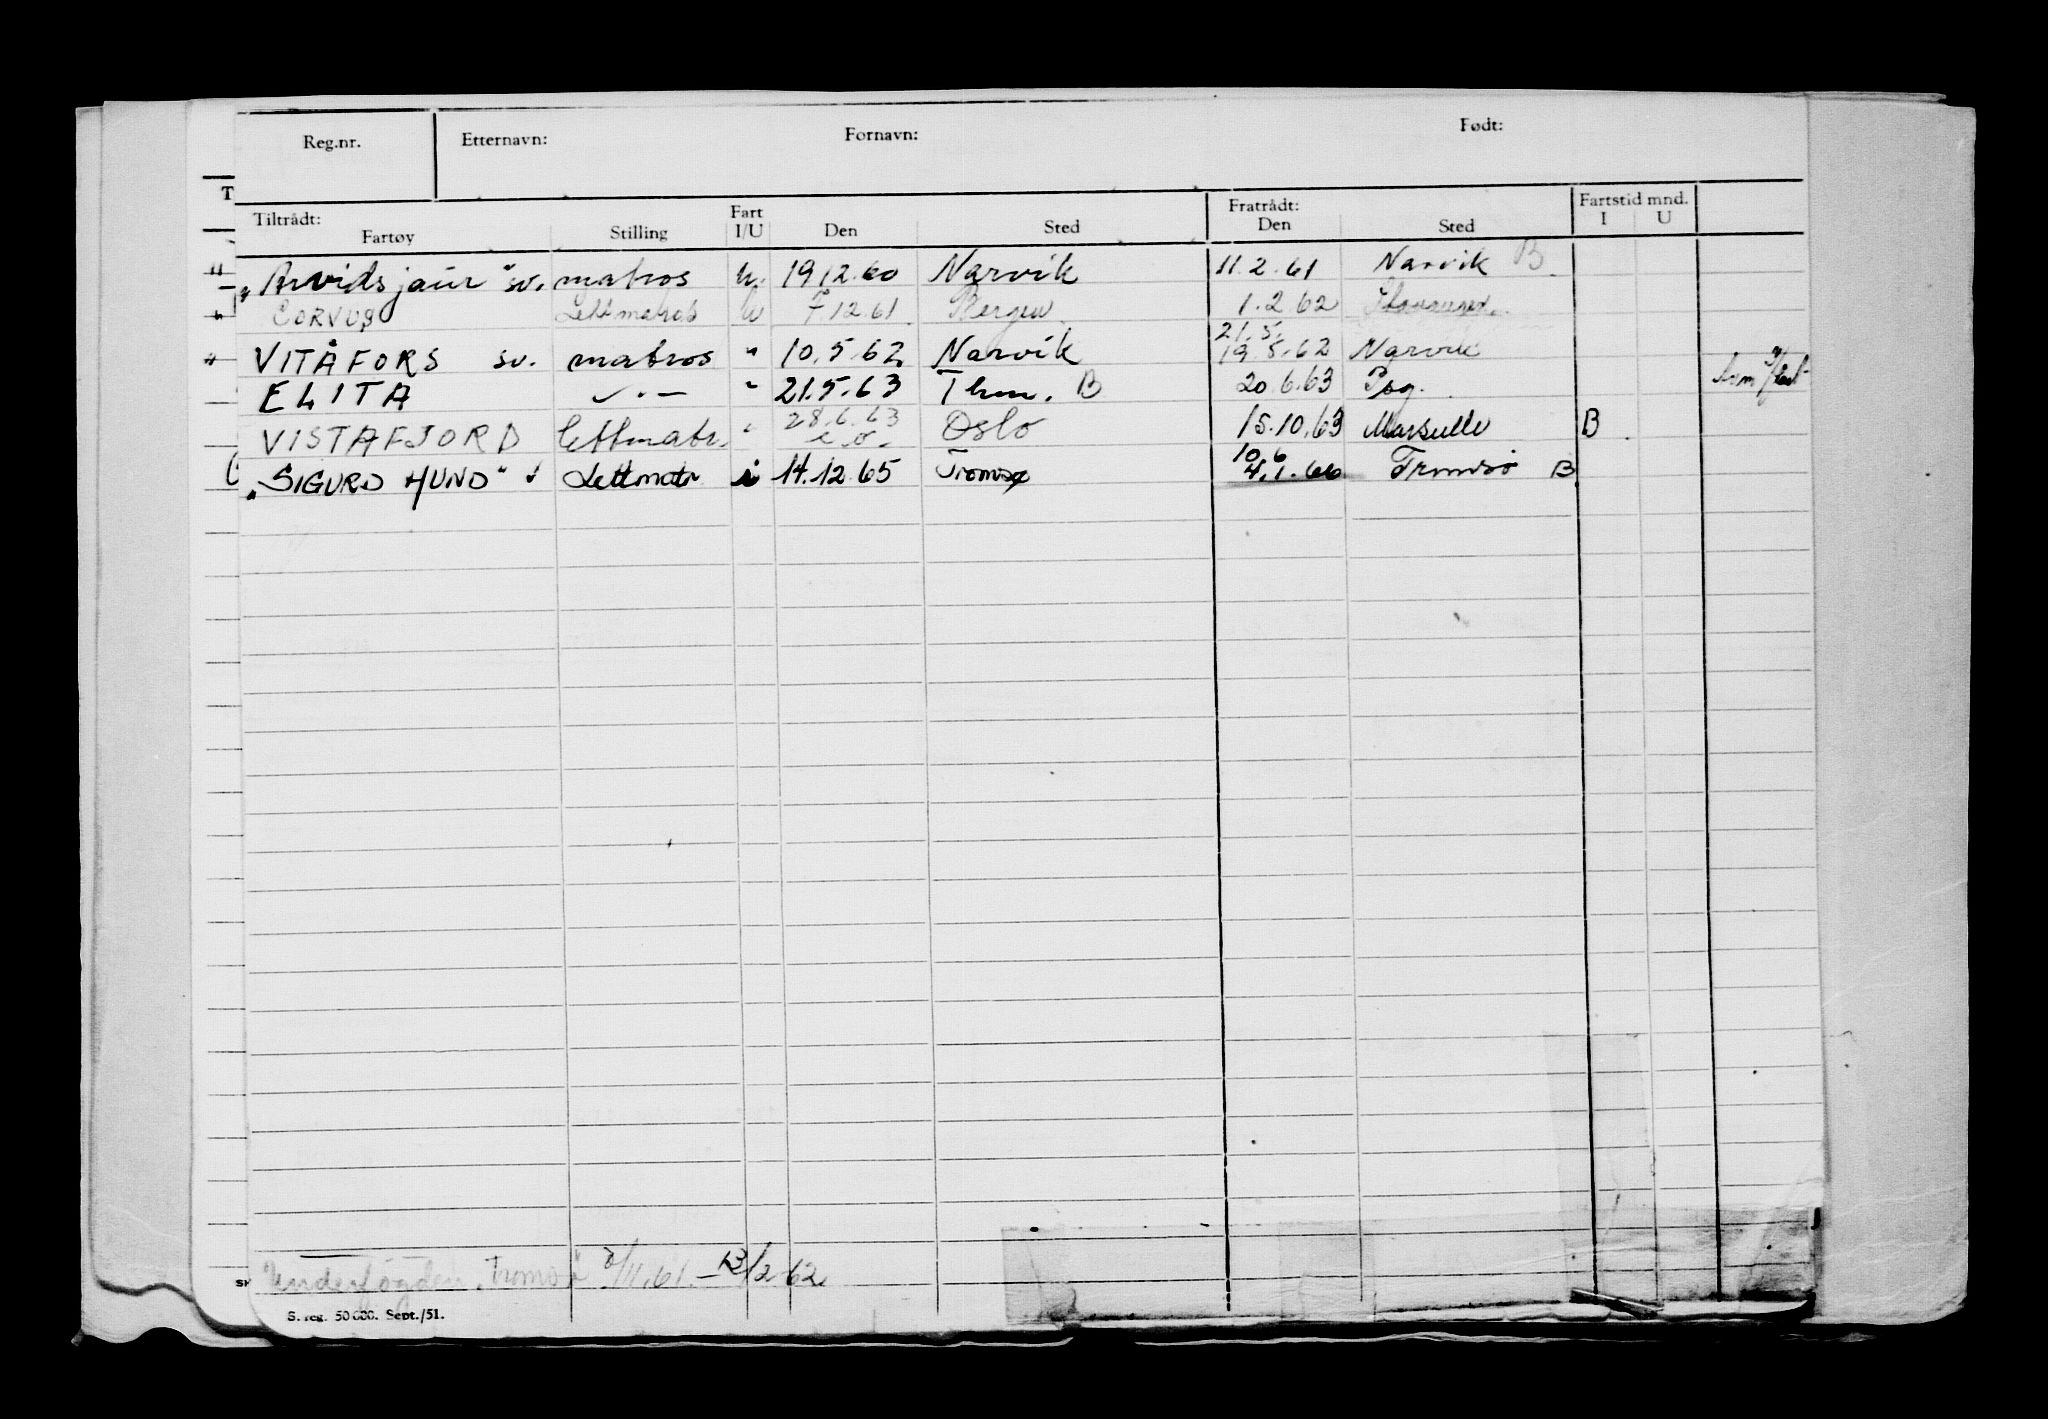 Reg.nr. Etternavn: Fornavn: Født:
T
Tiltrådt: Fratrådt: Fartstid mnd.
Fartøy Stilling Fart I/U Den Sted Den Sted I U
"Arvidsjaur" sv. matros u. 19 12.60 Narvik 11.2.61 Narvik B
CORVUS Lettmatros u 7 12.61 Bergen 1.2 62
21.5.
VITÅFORS sv. matros " 10.5.62 Narvik 19.5.62 Narvik
ELITA — " — " 21.5.63 Thm. B 20.6.63 Psg.
28.6.63
VISTAFJORD lettmatr. " Oslo 15.10.63 Marseille B
10.6
"SIGURD HUND" Lettmatr i 14.12.65 Tromsø 4.1.66 Tromsø B
Underfogden, Tromsø 3/11.61 – 13/2 62
S. reg. 50 000. Sept./51.